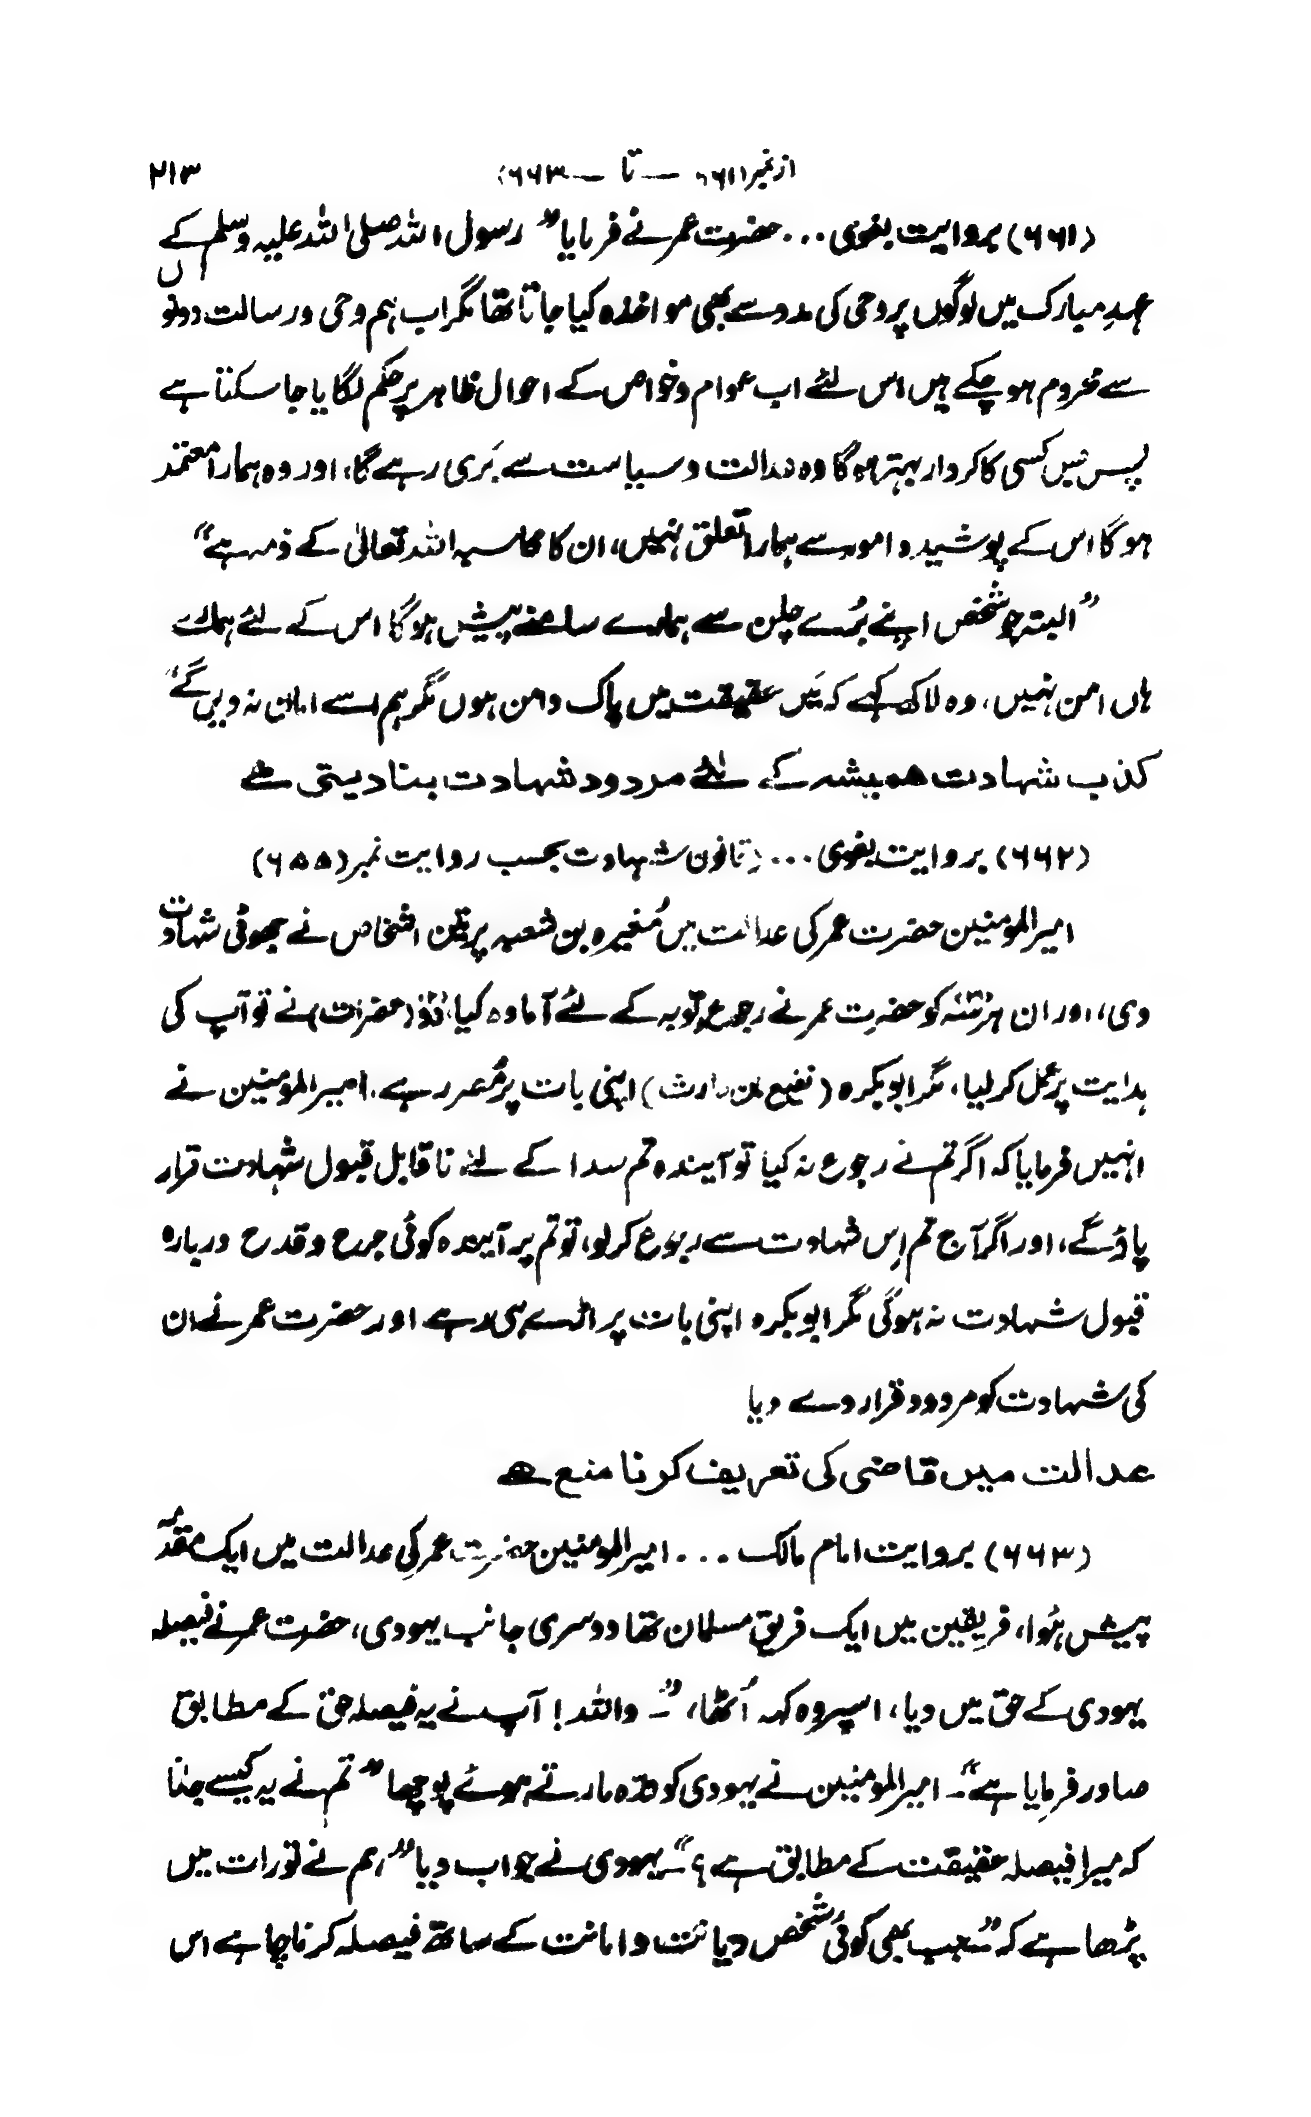 از نمبر (۶۶۱) — تا — (۶۶۳) ۲۱۳
(۶۶۱) بروایت بغوی ... حضرت عمر نے فرمایا “ رسول اللہ صلی اللہ علیہ وسلم کے
عہدِ مبارک میں لوگوں پر وحی کی مدد سے بھی مواخذہ کیا جاتا تھا مگر اب ہم وحی و رسالت دونوں
سے محروم ہو چکے ہیں اس لئے اب عوام و خواص کے احوال ظاہر پر حکم لگایا جا سکتا ہے
پس جس کسی کا کردار بہتر ہو گا وہ عدالت و سیاست سے بَری رہے گا، اور وہ ہمارا معتمد
ہو گا اس کے پوشیدہ امور سے ہمارا تعلق نہیں، ان کا محاسبہ اللہ تعالیٰ کے ذمہ ہے ”
“ البتہ جو شخص اپنے بُرے چلن سے ہمارے سامنے پیش ہو گا اس کے لئے ہمارے
ہاں امن نہیں، وہ لاکھ کہے کہ مَیں حقیقت میں پاک دامن ہوں مگر ہم اسے امان نہ دیں گے ”
کذب شہادت ہمیشہ کے لئے مردود شہادت بنا دیتی ہے
(۶۶۲) بروایت بغوی ... (قانون شہادت بحسب روایت نمبر (۶۵۵)
امیر المومنین حضرت عمر کی عدالت میں مُغیرہ بن شعبہ پر تین اشخاص نے جھوٹی شہادت
دی، اور ان ہر سَہ کو حضرت عمر نے رجوع و توبہ کے لئے آمادہ کیا، دو (حضرات) نے تو آپ کی
ہدایت پر عمل کر لیا، مگر ابو بکرہ (نفیع بن حارث) اپنی بات پر مُصر رہے. امیر المومنین نے
انہیں فرمایا کہ اگر تم نے رجوع نہ کیا تو آیندہ تم سدا کے لئے ناقابل قبول شہادت قرار
پاؤ گے، اور اگر آج تم اِس شہادت سے رجوع کر لو، تو تم پر آیندہ کوئی جرح و قدح دربارہ
قبول شہادت نہ ہو گی مگر ابو بکرہ اپنی بات پر اڑے ہی رہے اور حضرت عمر نے ان
کی شہادت کو مردود قرار دے دیا
عدالت میں قاضی کی تعریف کرنا منع ہے
(۶۶۳) بروایت امام مالک ... امیر المومنین حضرت عمر کی عدالت میں ایک مقدمہ
پیش ہُوا، فریقین میں ایک فریق مسلمان تھا دوسری جانب یہودی، حضرت عمر نے فیصلہ
یہودی کے حق میں دیا، اسپر وہ کہہ اُٹھا، “۔ واللہ! آپ نے یہ فیصلہ حق کے مطابق
صادر فرمایا ہے ”۔ امیر المومنین نے یہودی کو درّہ مارتے ہوئے پوچھا “ تم نے یہ کیسے جانا
کہ میرا فیصلہ حقیقت کے مطابق ہے؟ ”۔ یہودی نے جواب دیا “، ہم نے تورات میں
پڑھا ہے کہ “۔ جب بھی کوئی شخص دیانت و امانت کے ساتھ فیصلہ کرنا چاہے اس